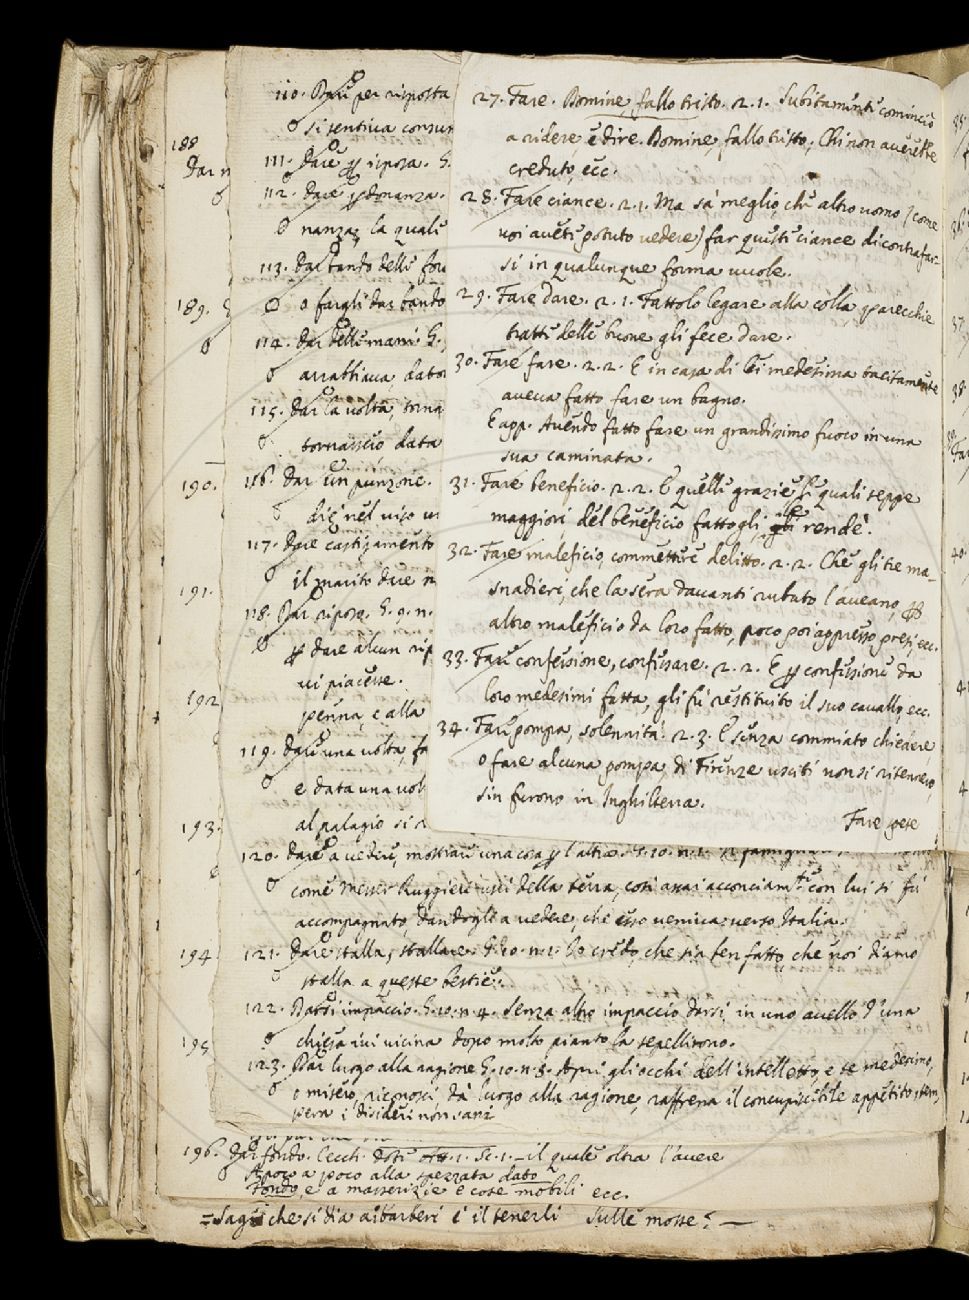 188
Dar
189.
190.
191.
192
193.
194
195
110. Dare per risposta
si sentiva consu
111. Dare riposa.
112. Dare donanza.
nanza, la quale
113. Dar bando delle for
o fargli dar bando
114. Dar delle mani
arrabbiava dato
115. Dar la volta, torna
tornasse data
116. Dar un punzone.
die nel viso un
117. Dare castigamento
il marito dare
118. Dar riposo. G. 9. n.
dare alcun rip
vi piacesse.
penna, e alla
119. Dare una volta,
e data una vol
al palagio si
120. Dare a vedere, mostrare una cosa per l'altra. G. 10. n. 1.
come messer Ruggieri uscì della terra, così assai acconciam.te con lui si fù
accompagnato, dandogli a vedere, che esso veniva verso Italia.
121. Dare stalla, stallare. G. 10. n. 1. Io credo, che sia ben fatto, che noi diamo
stalla a queste bestie.
122. Darsi impaccio. G. 10. n. 4. Senza altro impaccio darsi in uno avello d'una
chiesa ivi vicina dopo molto pianto la seppellirono.
123. Dar luogo alla ragione G. 10. n. 8. Apri gli occhi dell'intelletto, e te medesimo,
o misero, riconosci, dà luogo alla ragione, raffrena il concupiscibile appetito, tem,
pera i disideri non sani
196. Dar fondo. Cecch. Dote att. 1. Sc. 1. - il quale oltra l'avere
A poco a poco alla spezzata dato
Fondo, e a masserizie e cose mobili ecc.
= Saggi che si dia a i barberi è il tenerli sulle mosse? —
27. Fare. Domine, fallo tristo. 2. 1. Subitamente cominciò
a ridere e dire. Domine, fallo tristo; Chi non averebbe
creduto, ecc.
28. Fare ciance. 2. 1. Ma sà meglio, che altro uomo (come
voi avete potuto vedere) far queste ciance di contrafar-
si in qualunque forma vuole.
29. Fare dare. 2. 1. Fattolo legare alla colla parecchie
tratte delle buone gli fece dare.
30. Fare fare. 2. 2. E in casa di lei medesima tacitamente
aveva fatto fare un bagno.
E app. Avendo fatto fare un grandissimo fuoco in una
sua caminata.
31. Fare beneficio. 2. 2. E quelle grazie, le quali seppe
maggiori del beneficio fattogli, le rendè.
32. Fare maleficio, commettere delitto. 2. 2. Che gli tre ma-
snadieri, che la sera davanti rubato l'aveano, per
altro maleficio da loro fatto, poco poi appresso presi, ecc.
33. Fare confessione, confessare. 2. 2. E per confessione da
loro medesimi fatta, gli fù restituito il suo cavallo, ecc.
34. Fare pompa, solennità. 2. 3. E senza commiato chiedere,
o fare alcuna pompa, di Firenze usciti non si ritennero,
sin furono in Inghilterra.
Fare pese